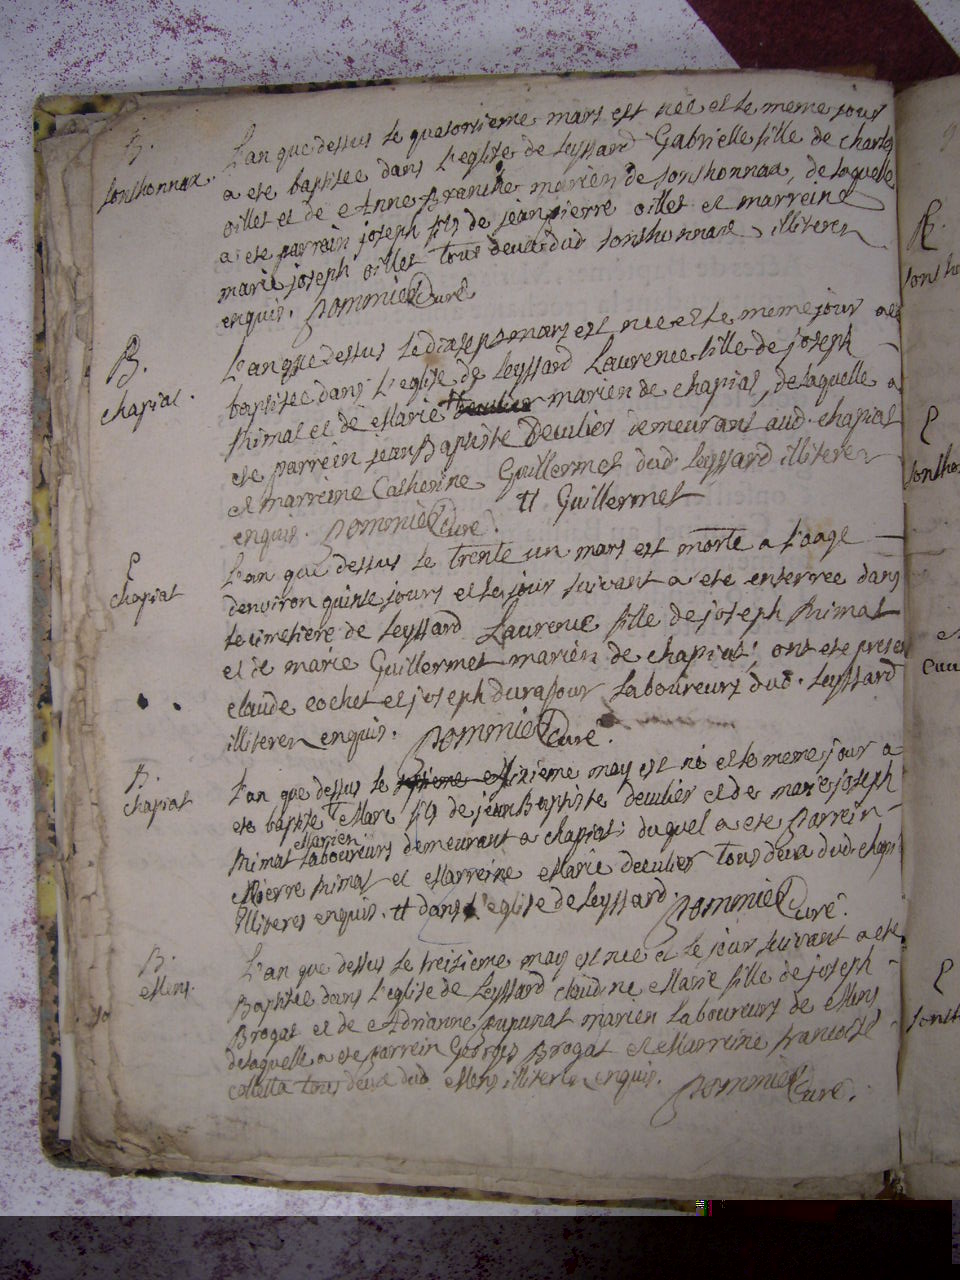 B.
sonthonnax.
L'an que dessus le quatorsieme mars est née et le meme jour
a ete baptisée dans l'eglise de leyssard Gabrielle fille de charles
oillet et de Anne Branche marien de sonthonnax, de laquelle
a ete parrein joseph fils de jean pierre oillet et marreine
marie joseph oillet tous deux dud sonthonnax illiteres
enquis. pommier Curé
B.
chapiat.
L'an que dessus le dixsept mars est née et le meme jour a ete
baptisée dans l'eglise de leyssard Laurence fille de joseph
thimat et de Marie # marien de chapiat, de laquelle a
ete parrein jean Baptiste Decullier demeurant aud. chapiat
et marreine Catherine Guillermet dud. leyssard illiteres
enquis. pommier Curé. # Guillermet
chapiat
L'an que dessus le trente un mars est morte a l'aage
denviron quinse jours et le jour suivant a ete enterrée dans
le cimetiere de leyssard Laurence fille de joseph thimat
et de marie Guillermet marién de chapiat; ont ete presen
claude cochet et joseph durafour laboureurs dud. leyssard
illiteres enquis. pommier Curé.
B.
chapiat
L'an que dessus le sixieme may est né et le meme jour a
ete baptisé Marc fils de jean Baptiste decullier et de marie joseph
marien
thimat laboureurs demeurant a chapiat; duquel a ete parrein
Pierre thimat et Marreine Marie decullier tous deux dud. chapi
illiteres enquis. # dans l'eglise de leyssard. pommier Curé.
B.
Mens.
L'an que dessus le treisieme may est née et le jour suivant a ete
Baptisée dans l'eglise de leyssard claudine Marie fille de joseph
Brogat et de Adrianne pupunat marien laboureurs de Mens
de laquelle a ete parrein Georges Brogat et Marreine francoise
colletta tous deux dud Mens illiteres enquis. pommier Curé.